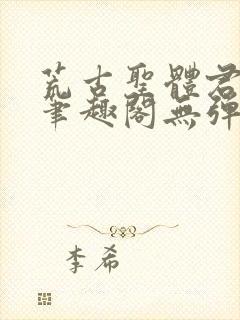 荒古聖體君
筆趣閣無彈
李希